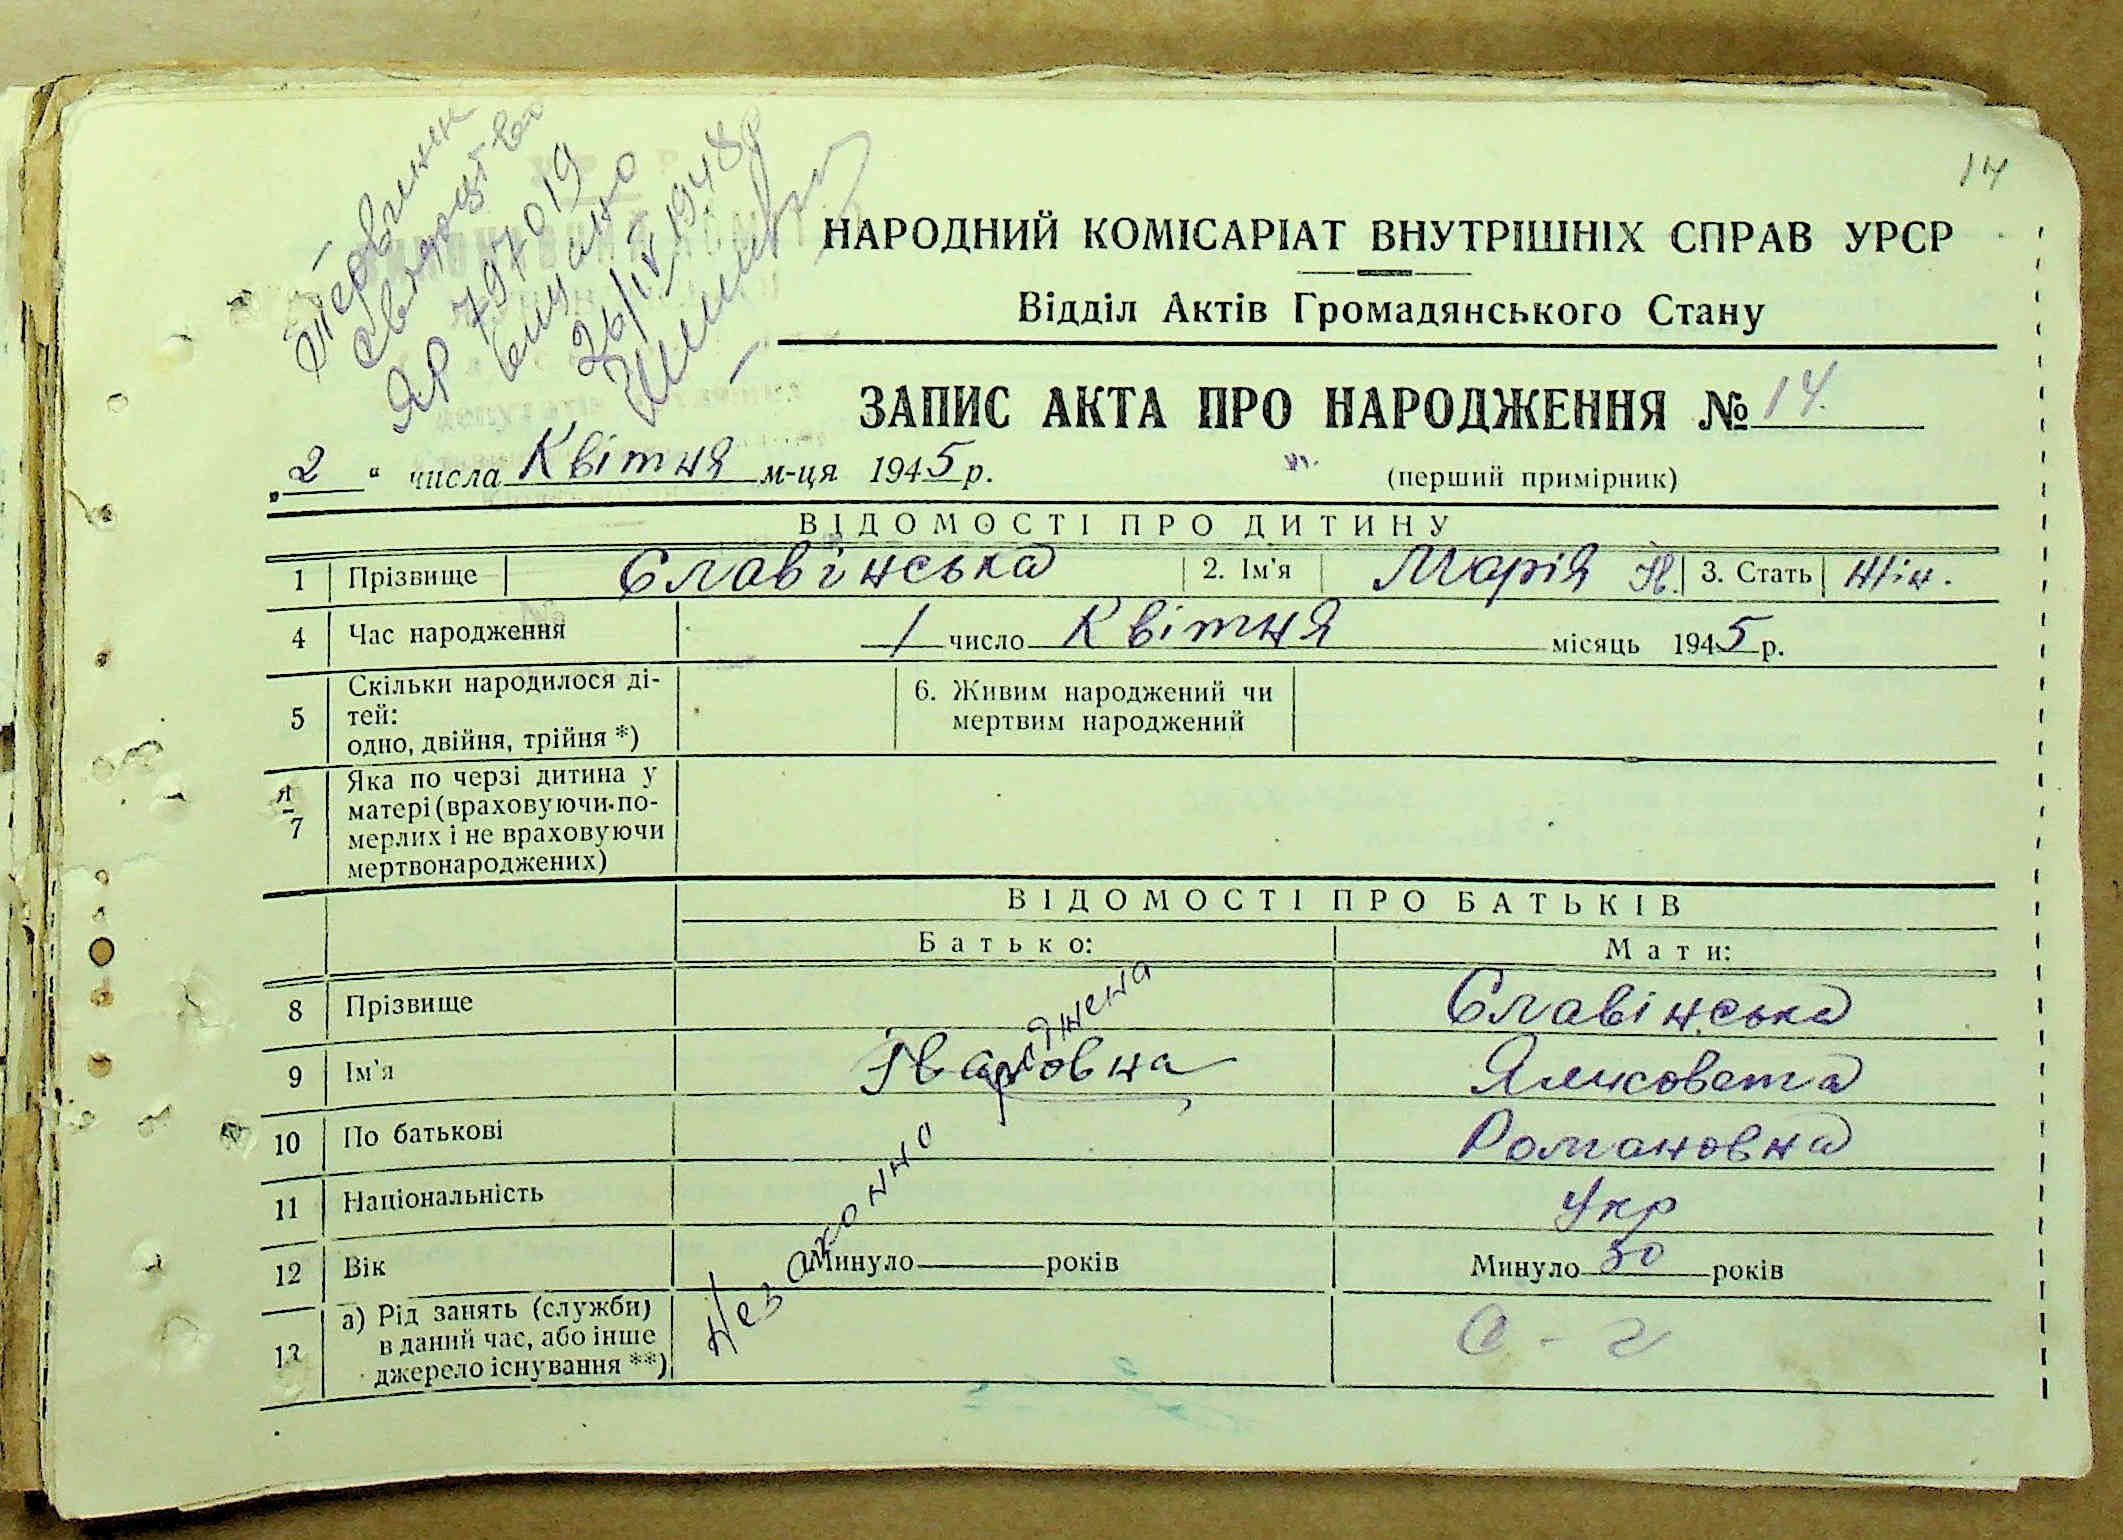 14
Первинне
свідоцтво
ЯР 797019
видано
26/IV 1948 р
НАРОДНИЙ КОМІСАРІАТ ВНУТРІШНІХ СПРАВ УРСР
Відділ Актів Громадянського Стану
ЗАПИС АКТА ПРО НАРОДЖЕННЯ № 14.
„2" числа Квітня м-ця 1945 р.
(перший примірник)
ВІДОМОСТІ ПРО ДИТИНУ
1 Прізвище Славінська 2. Ім'я Марія 3. Стать Жін.
4 Час народження 1 число Квітня місяць 1945 р.
5 Скільки народилося ді-
тей:
одно, двійня, трійня *)
6. Живим народжений чи
мертвим народжений
7 Яка по черзі дитина у
матері (враховуючи по-
мерлих і не враховуючи
мертвонароджених)
ВІДОМОСТІ ПРО БАТЬКІВ
Батько: Мати:
8 Прізвище Славінська
9 Ім'я Івановна Ялисовета
10 По батькові Романовна
11 Національність Укр
12 Вік Минуло років Минуло 30 років
Незаконно рожнена
13 а) Рід занять (служби)
в даний час, або інше
джерело існування **)
С - г